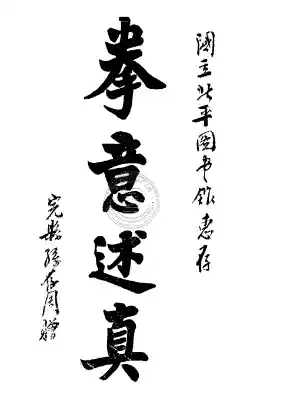 國立北平圖書館惠存
拳意述真
完縣孫存周贈